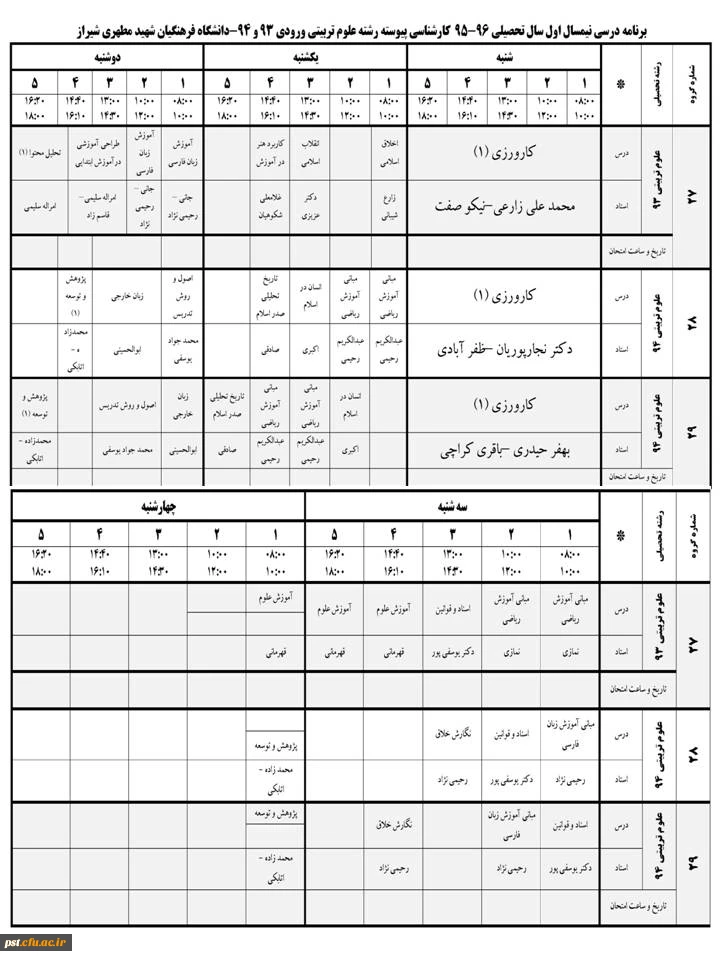 برنامه درسی نیمسال اول سال تحصیلی ۹۶-۹۵ کارشناسی پیوسته رشته علوم تربیتی ورودی ۹۳ و ۹۴-دانشگاه فرهنگیان شهید مطهری شیراز
شماره گروه رشته تحصیلی * شنبه یکشنبه دوشنبه
۱ ۲ ۳ ۴ ۵ ۱ ۲ ۳ ۴ ۵ ۱ ۲ ۳ ۴ ۵
۰۸:۰۰ ۱۰:۰۰ ۱۳:۰۰ ۱۴:۴۰ ۱۶:۲۰ ۰۸:۰۰ ۱۰:۰۰ ۱۳:۰۰ ۱۴:۴۰ ۱۶:۲۰ ۰۸:۰۰ ۱۰:۰۰ ۱۳:۰۰ ۱۴:۴۰ ۱۶:۲۰
۱۰:۰۰ ۱۲:۰۰ ۱۴:۳۰ ۱۶:۱۰ ۱۸:۰۰ ۱۰:۰۰ ۱۲:۰۰ ۱۴:۳۰ ۱۶:۱۰ ۱۸:۰۰ ۱۰:۰۰ ۱۲:۰۰ ۱۴:۳۰ ۱۶:۱۰ ۱۸:۰۰
۲۷ علوم تربیتی ۹۳
درس کارورزی (۱) اخلاق اسلامی انقلاب اسلامی کاربرد هنر در آموزش آموزش زبان فارسی آموزش زبان فارسی طراحی آموزشی در آموزش ابتدایی تحلیل محتوا (۱)
استاد محمد علی زارعی-نیکو صفت زارع شیبانی دکتر عزیزی غلامعلی شکوهیان جانی - رحیمی نژاد جانی - رحیمی نژاد امراله سلیمی- قاسم زاد امراله سلیمی
تاریخ و ساعت امتحان
۲۸ علوم تربیتی ۹۴
درس کارورزی (۱) مبانی آموزش ریاضی مبانی آموزش ریاضی انسان در اسلام تاریخ تحلیلی صدر اسلام اصول و روش تدریس زبان خارجی پژوهش و توسعه (۱)
استاد دکتر نجارپوریان -ظفر آبادی عبدالکریم رحیمی عبدالکریم رحیمی اکبری صادقی محمد جواد یوسفی ابوالحسینی محمدزاد ه - اتابکی
۲۹ علوم تربیتی ۹۴
درس کارورزی (۱) انسان در اسلام مبانی آموزش ریاضی مبانی آموزش ریاضی تاریخ تحلیلی صدر اسلام زبان خارجی اصول و روش تدریس پژوهش و توسعه (۱)
استاد بهفر حیدری -باقری کراچی اکبری عبدالکریم رحیمی عبدالکریم رحیمی صادقی ابوالحسینی محمد جواد یوسفی محمدزاده - اتابکی
تاریخ و ساعت امتحان
شماره گروه رشته تحصیلی * سه شنبه چهارشنبه
۱ ۲ ۳ ۴ ۵ ۱ ۲ ۳ ۴ ۵
۰۸:۰۰ ۱۰:۰۰ ۱۳:۰۰ ۱۴:۴۰ ۱۶:۲۰ ۰۸:۰۰ ۱۰:۰۰ ۱۳:۰۰ ۱۴:۴۰ ۱۶:۲۰
۱۰:۰۰ ۱۲:۰۰ ۱۴:۳۰ ۱۶:۱۰ ۱۸:۰۰ ۱۰:۰۰ ۱۲:۰۰ ۱۴:۳۰ ۱۶:۱۰ ۱۸:۰۰
۲۷ علوم تربیتی ۹۳
درس مبانی آموزش ریاضی مبانی آموزش ریاضی اسناد و قوانین آموزش علوم آموزش علوم آموزش علوم
استاد نمازی نمازی دکتر یوسفی پور قهرمانی قهرمانی قهرمانی
تاریخ و ساعت امتحان
۲۸ علوم تربیتی ۹۴
درس مبانی آموزش زبان فارسی اسناد و قوانین نگارش خلاق پژوهش و توسعه
استاد رحیمی نژاد دکتر یوسفی پور رحیمی نژاد محمد زاده - اتابکی
۲۹ علوم تربیتی ۹۴
درس اسناد و قوانین مبانی آموزش زبان فارسی نگارش خلاق پژوهش و توسعه
استاد دکتر یوسفی پور رحیمی نژاد رحیمی نژاد محمد زاده - اتابکی
تاریخ و ساعت امتحان
pst.cfu.ac.ir